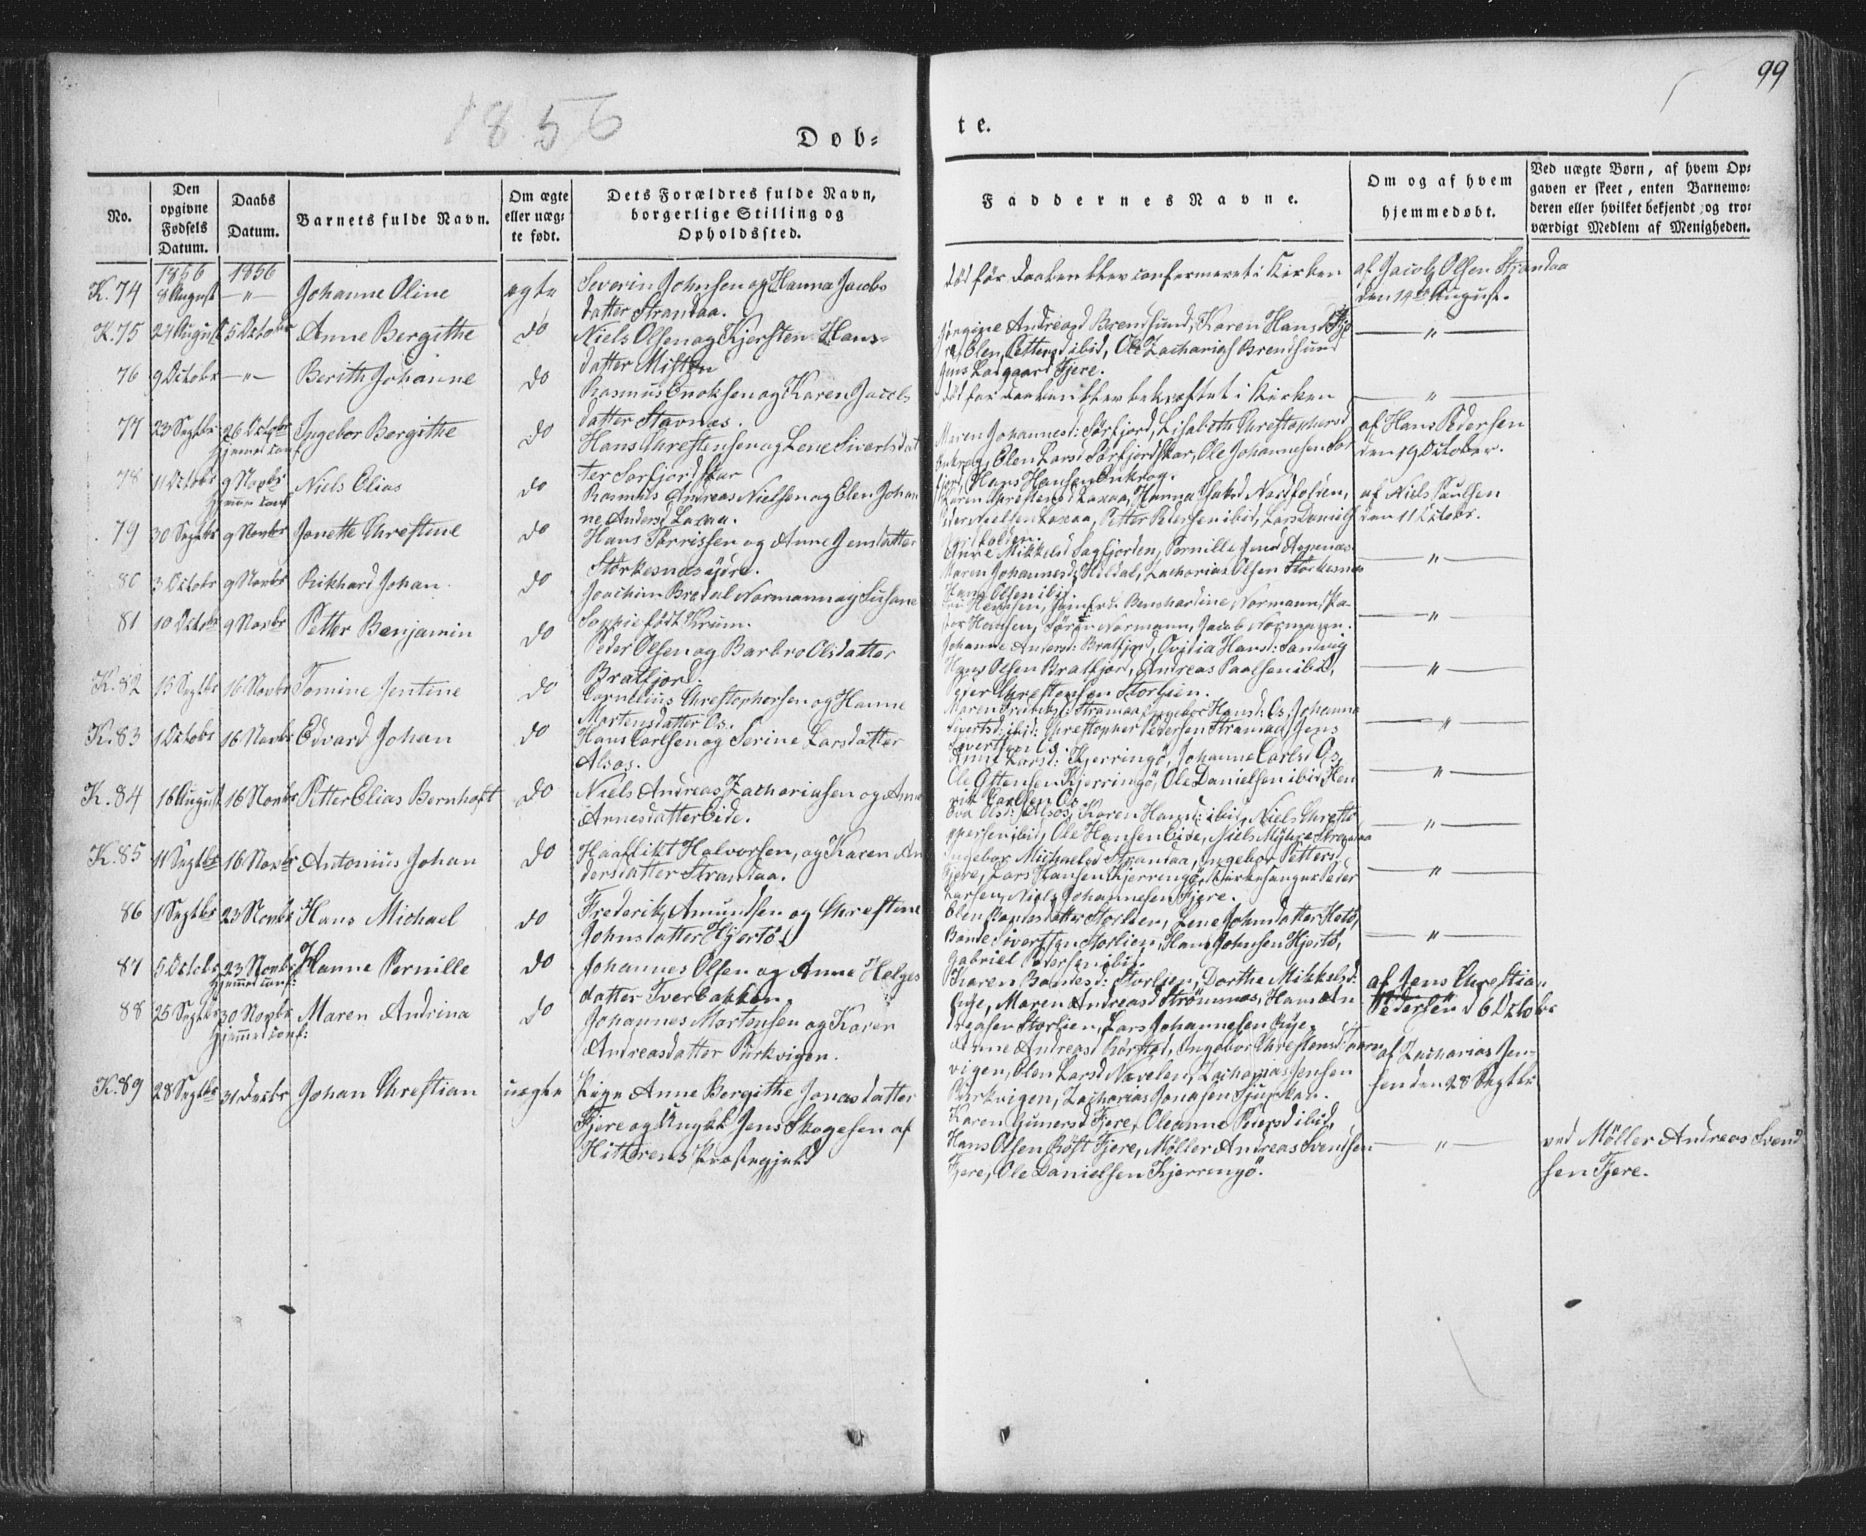 99
1856
Døb-
te.
No.
Den opgivne Fødsels Datum.
Daabs Datum.
Barnets fulde Navn.
Om ægte eller uægte født.
Dets Forældres fulde Navn, borgerlige Stilling og Opholdssted.
Faddernes Navne.
Om og af hvem hjemmedøbt.
Ved uægte Børn, af hvem Opgaven er skeet, enten Barnemoderen eller hvilket bekjendt og troværdigt Medlem af Menigheden.
1856
1856
K. 74
8 August
—"—
Johanne Oline
ægte
Severin Johnsen og Hanna Jacobs
datter Strandaa.
død før Daaben blev confermeret i Kirken
af Jacob Olsen Strandaa
den 14de August.
K. 75
27 August
5 Octobr
Anne Bergithe
do
Niels Olsen og Kjersten Hans-
datter Misten
Jørgine Andreasd Brendsund, Karen Hansd Fje
re, Olen Pettersd ibid, Ole Zachariasen Brendsund
Jens Laxgaard Fjere.
—"—
76
9 Octobr
—"—
Berith Johanne
do
Rasmus Enoksen og Karen Jacobs
datter Stavnæs.
død før Daaben blev bekræftet i Kirken
—"—
77
23 Septbr
26 Octobr
Hjemmed conf
Ingebor Bergithe
do
Hans Chrestensen og Lene Sivertsdat
ter Sørfjordskar
Maren Johannesd: Sørfjord, Lisabeth Chrestophersd
Enkrog, Olen Larsd Sørfjordskar, Ole Johannesen Sør
fjord, Hans Hansen Enkrog.
af Hans Pedersen
den 19 October.
78
11 Octobr
9 Novbr
Hjemmed conf
Niels Elias
do
Rasmus Andreas Nielsen og Elen Johan
ne Andersd Laxaa.
Karen Chrestensd Laxaa, Hanna Isaksd Nordfolden,
Peder Nielsen Laxaa, Petter Pedersen ibid, Lars Daniels
af Niels Paulsen
den 11 Octobr.
79
30 Septbr
9 Novbr
Jonette Chrestine
do
Hans Torrissen og Anne Jensdatter
Storkesnæs øjere.
Anne Mikkelsd Sagfjorden, Pernille Jensd Aspenæs
Maren Johannesd, Hildal, Zacharias Olsen Storkesnæs
Hans Olsen ibid.
—"—
80
3 Octobr
9 Novbr
Rikhard Johan.
do
Joachim Bredal Normann og Susane
Sophie født Krum.
Fru Hensen, Jomfru Benshardine Normann, Pa-
stor Hensen, Søren Normann, Jacob Normann.
—"—
81
10 Octobr
9 Novbr
Petter Benjamin
do
Peder Olsen og Barbro Olsdatter
Bratfjord.
Johanne Andersd: Bratfjord, Ovidia Hansd: Sandvig
Hans Olsen Bratfjord, Andreas Paalsen ibid,
Peder Chrestensen Storlien.
—"—
K. 82
15 Septbr
16 Novbr
Tomine Jentine
do
Cornelius Chrestophersen og Hanne
Mortensdatter Os.
Sivertsd: ibid: Chrestopher Pedersen Strandaa, Jens
Sivertsen Os.
—"—
K. 83
1 Octobr
16 Novbr
Edvard Johan
do
Hans Carlsen og Serine Larsdatter
Alsos.
Larsd: Kjerringø, Johanne Carlsd Os,
Ole Kjerringø, Ole Danielsen ibid, Hen
rik Carlsen Os.
—"—
K. 84
16 August
16 Novbr
Petter Elias Bernhoft
do
Niels Andreas Zachariasen og Anne
Arnesdatter Eide.
Eva Olsd: Alsos, Karen Hansd: ibid, Niels Chresto
phersen ibid, Ole Hansen Eide, Niels Myhre Strandaa
—"—
K. 85
11 Septbr
16 Novbr
Antonius Johan
do
Haaflikt Halvorsen, og Karen An
dersdatter Strandaa.
Ingebor Michaelsd Strandaa, Ingebor Pettersd
Fjere, Lars Hansen Kjerringø, Kirkesanger Peder
Larsen, Niels Johannesen Fjere.
—"—
86
1 Septbr
23 Novbr
Hans Michael
do
Frederik Amundsen og Chrestine
Johnsdatter Hjertø
Olen Baardsdatter Storlien, Lene Johnsdatter Hertø,
Baard Sivertsen Storlien, Hans Johnsen Hjertø,
Gabriel Petersen ibid.
—"—
87
5 Octobr
23 Novbr
Hjemmed conf:
Hanne Pernille
do
Johannes Olsen og Anne Helges
datter Tverbakken.
Karen Baardsd: Storlien, Dorthe Mikkelsd:
Rye, Maren Andreasd Strømnæs, Hans An
dreasen Storlien, Lars Johannesen Rye.
af Jens Chrestian
Pedersen d 6 Octobr
88
25 Septbr
30 Novbr
Hjemmed conf:
Maren Andrina
do
Johannes Mortensen og Karen
Andreasdatter Pirkvigen.
Anne Andreasd Rørstad, Ingebor Chrestensd:
vigen, Olen Larsd Nævelen, Zacharias Jensen
Pirkvigen, Zacharias Jonasen
af Zacharias Jen-
sen den 28 Septbr
K. 89
28 Septbr
31 Decbr
Johan Chrestian
uægte
Pige Anne Bergithe Jonasdatter
Fjere og Ungkl Jens Skogesen af
Hitterens Præstegjeld
Karen Gunersd Fjere, Oleanne Pedersd ibid,
Hans Olsen Røst Fjere, Møller Andreas Svendsen
Fjere, Ole Danielsen Kjerringø.
—"—
ved Møller Andreas Svend
sen Fjere.